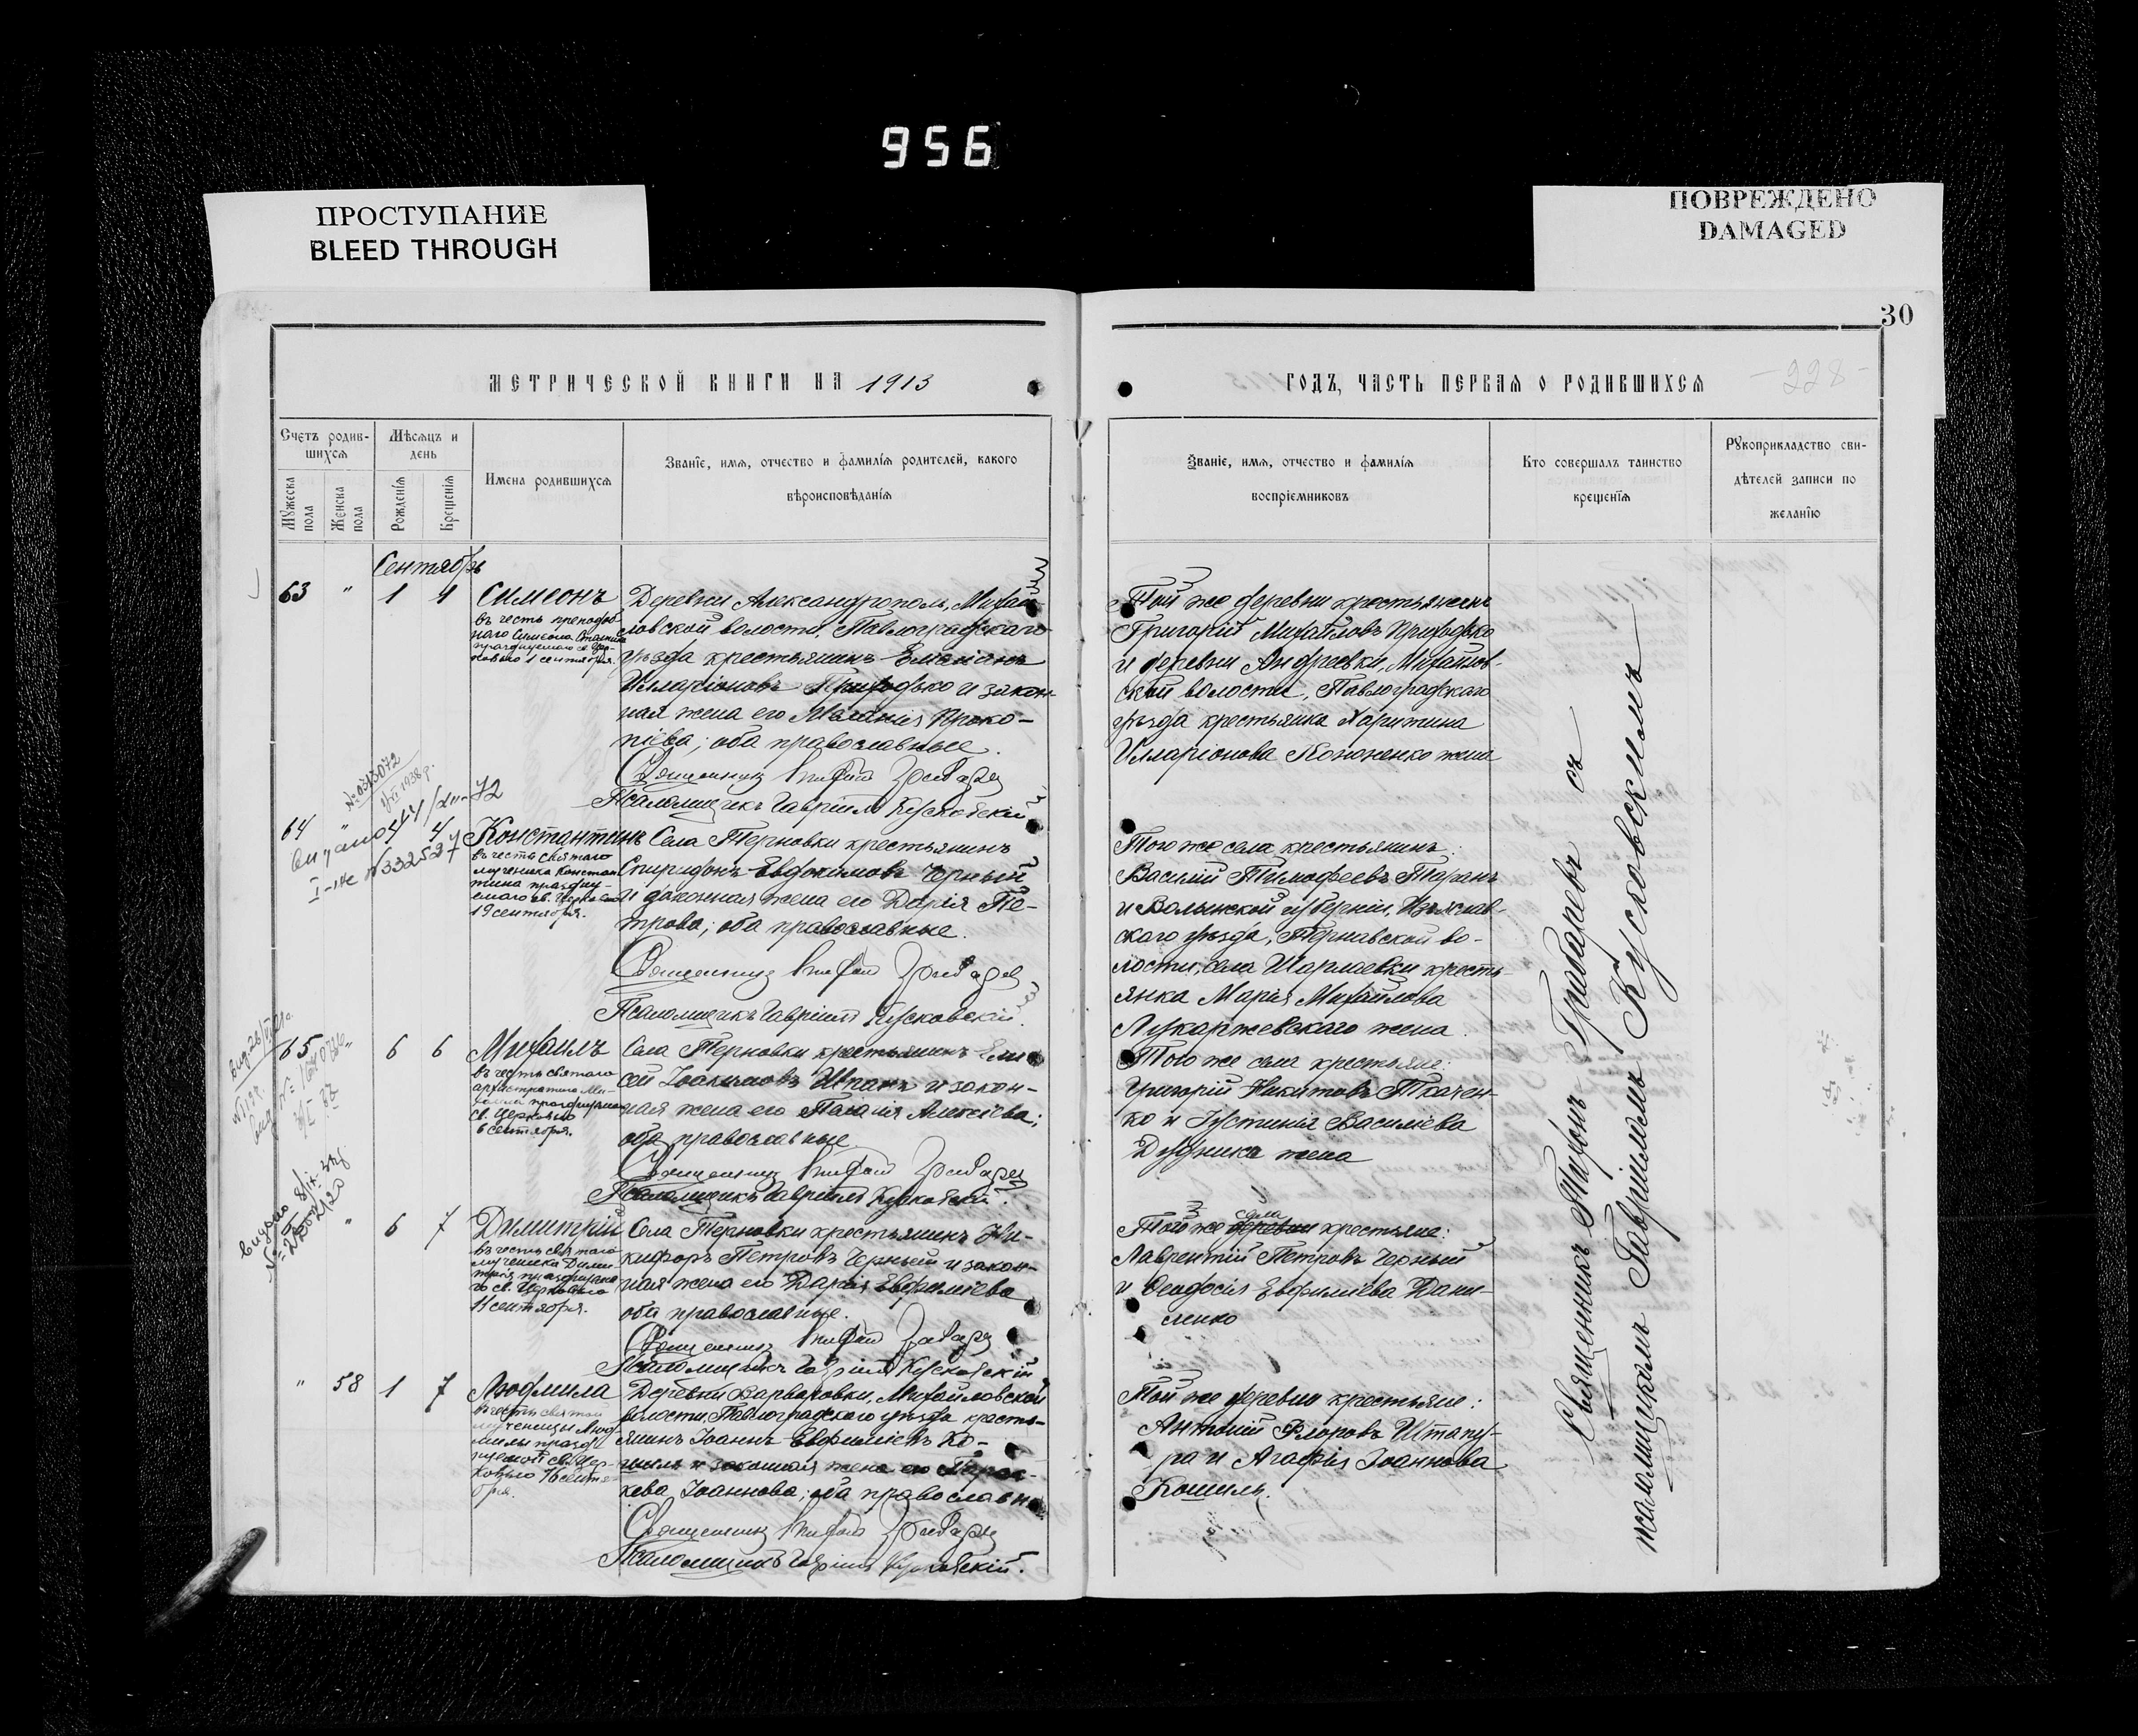 956
ПРОСТУПАНИЕ
BLEED THROUGH
ПОВРЕЖДЕНО
DAMAGED
30
МЕТРИЧЕСКОЙ КНИГИ НА 1913
ГОДЪ, ЧАСТЬ ПЕРВАЯ О РОДИВШИХСЯ
- 228 -
Счетъ родив-
шихся
Мужеска
пола
Женска
пола
Мѣсяцъ и
день
Рожденія
Крещенія
Имена родившихся
Званіе, имя, отчество и фамилія родителей, какого
вѣроисповѣданія
Званіе, имя, отчество и фамилія
воспріемниковъ
Кто совершалъ таинство
крещенія
Рукоприкладство сви-
дѣтелей записи по
желанію
Сентябрь
63 " 1 4
Симеонъ
въ честь преподоб-
наго Симеона Столпника
празднуемаго св. Цер-
ковью 1 сентября.
Деревни Александрополь, Михай-
ловской волости, Павлоградскаго
уѣзда крестьянинъ Емеліанъ
Илларіоновъ Приходько и закон-
ная жена его Маланія Проко-
піева; оба православные.
Священникъ Тихонъ Грибаревъ
Псаломщикъ Гавріилъ Кусковскій
Той же деревни крестьянинъ
Григорій Михайловъ Приходько
и деревни Андреевки, Михайлов-
ской волости, Павлоградскаго
уѣзда крестьянка Харитина
Илларіонова Кононенко жена
64 " 4 4
Константинъ
въ честь святаго
мученика Констан
тина праздну-
емаго св. Церковью
19 сентября.
Села Терновки крестьянинъ
Спиридонъ Евдокимовъ Черный
и законная жена его Дарія Пе-
трова; оба православные.
Священникъ Тихонъ Грибаревъ
Псаломщикъ Гавріилъ Кусковскій.
Того же села крестьянинъ:
Василій Тимофеевъ Таранъ
и Волынской губерніи, Изяслав-
скаго уѣзда, Тернавской во-
лости, села Шарлаевки кресть
янка Марія Михайлова
Лукаржевскаго жена.
65 " 6 6
Михаилъ
въ честь святаго
архистратига Ми-
хаила празднуемаго
св. Церковью
6 сентября.
Села Терновки крестьянинъ Ели
сей Іоакимовъ Шпакъ и закон-
ная жена его Пелагія Алексіева;
оба православные.
Священникъ Тихонъ Грибаревъ
Псаломщикъ Гавріилъ Кусковскій.
Того же села крестьяне:
Григорій Никитовъ Ткачен-
ко и Іустинія Василіева
Дудника жена
" 6 7
Димитрій
въ честь святаго
мученика Дими
трія празднуема
го св. Церковью
11 сентября.
Села Терновки крестьянинъ Ни-
кифоръ Петровъ Черный и закон-
ная жена его Дарія Евфиміева
оба православные.
Священникъ Тихонъ Грибаревъ
Псаломщикъ Гавріилъ Кусковскій
Того же деревни села крестьяне:
Лаврентій Петровъ Черный
и Ѳеодосія Евфиміева Дани-
ленко
" 58 1 7
Людмила
въ честь святой
мученицы Люд
милы праздн
уемой св. Цер-
ковью 16 сентя
бря.
Деревни Варваровки, Михайловской
волости, Павлоградскаго уѣзда кресть-
янинъ Іоаннъ Евфиміевъ Ко-
шиль и законная жена его Парас-
кева Іоаннова; оба православн
Священникъ Тихонъ Грибаревъ
Псаломщикъ Гавріилъ Кусковскій.
Той же деревни крестьяне:
Антоній Флоровъ Штапу-
ра и Агафія Іоаннова
Кошиль.
Священникъ Тихонъ Грибаревъ съ
псаломщикомъ Гавріиломъ Кусковскимъ